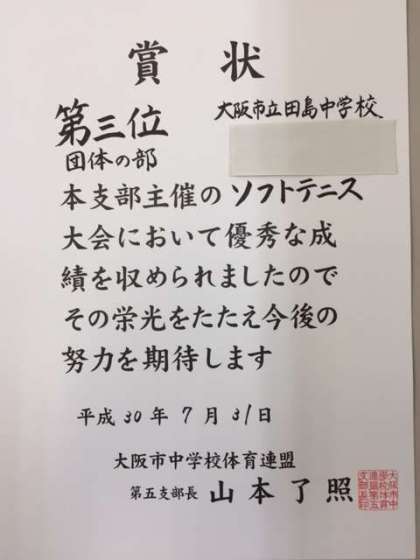 賞状
大阪市立田島中学校
第三位
団体の部
本支部主催のソフトテニス
大会において優秀な成
績を収められましたので
その栄光をたたえ今後の
努力を期待します
平成30年7月31日
大阪市中学校体育連盟
第五支部長 山本了照